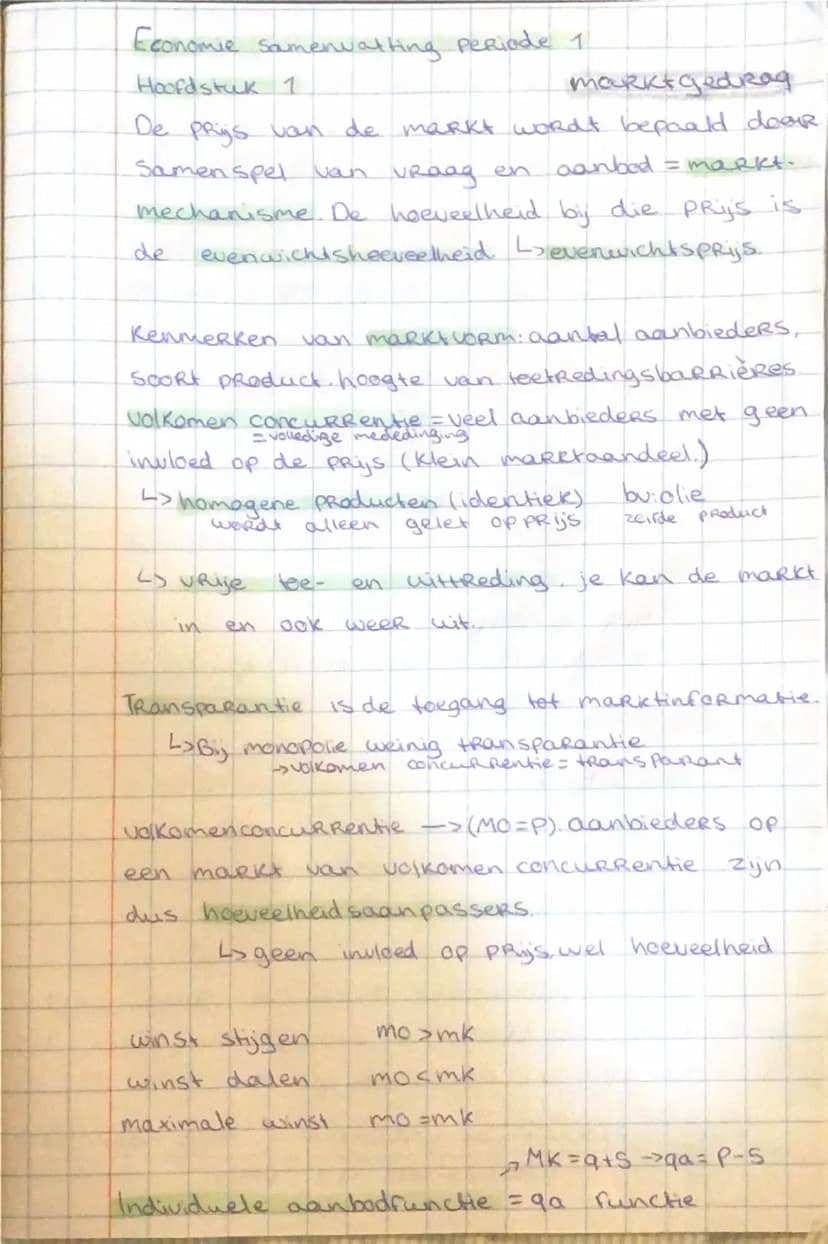 Economie samenvatting periode 1
Hoofdstuk 1 marktgedrag
De prijs van de markt wordt bepaald door
samenspel van vraag en aanbod = markt-
mechanisme. De hoeveelheid bij die prijs is
de evenwichtshoeveelheid. ↳evenwichtsprijs.
Kenmerken van marktvorm: aantal aanbieders,
soort product. hoogte van toetredingsbarrières
volkomen concurrentie = veel aanbieders met geen
= volledige mededinging
invloed op de prijs (klein marktaandeel.)
↳ homogene producten (identiek) bv: olie
wordt alleen gelet op prijs zelfde product
↳ vrije toe- en uittreding. je kan de markt
in en ook weer uit.
Transparantie is de toegang tot marktinformatie.
↳Bij monopolie weinig transparantie
→volkomen concurrentie = transparant
volkomenconcurrentie —> (MO=P). aanbieders op
een markt van volkomen concurrentie zijn
dus hoeveelheidsaanpassers.
↳ geen invloed op prijs. wel hoeveelheid
winst stijgen mo > mk
winst dalen mo < mk
maximale winst mo = mk
→ MK = q+5 → qa = P-5
Individuele aanbodfunctie = qa functie